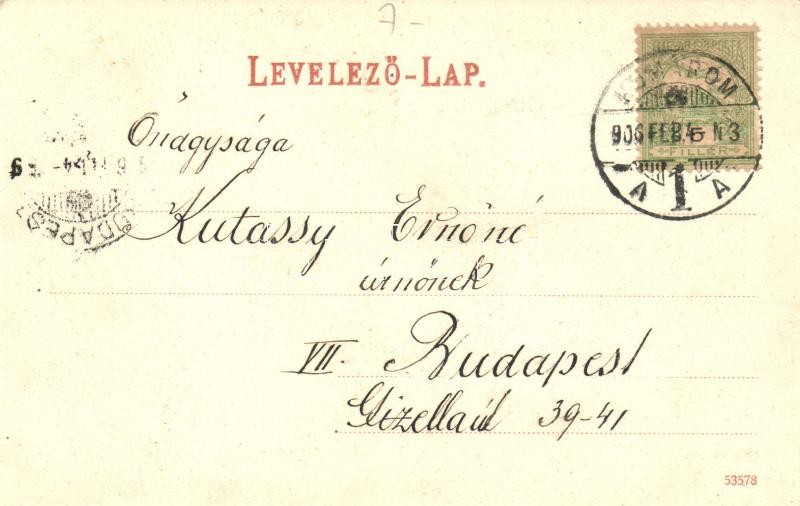 7-
LEVELEZŐ-LAP.
Őnagysága
Kutassy Ernőné
úrnőnek
VII. Budapest
Gizellaút 39-41
KOMÁROM
906 FEB 4 N 3
FILLÉR
A 1 A
BUDAPEST
53578